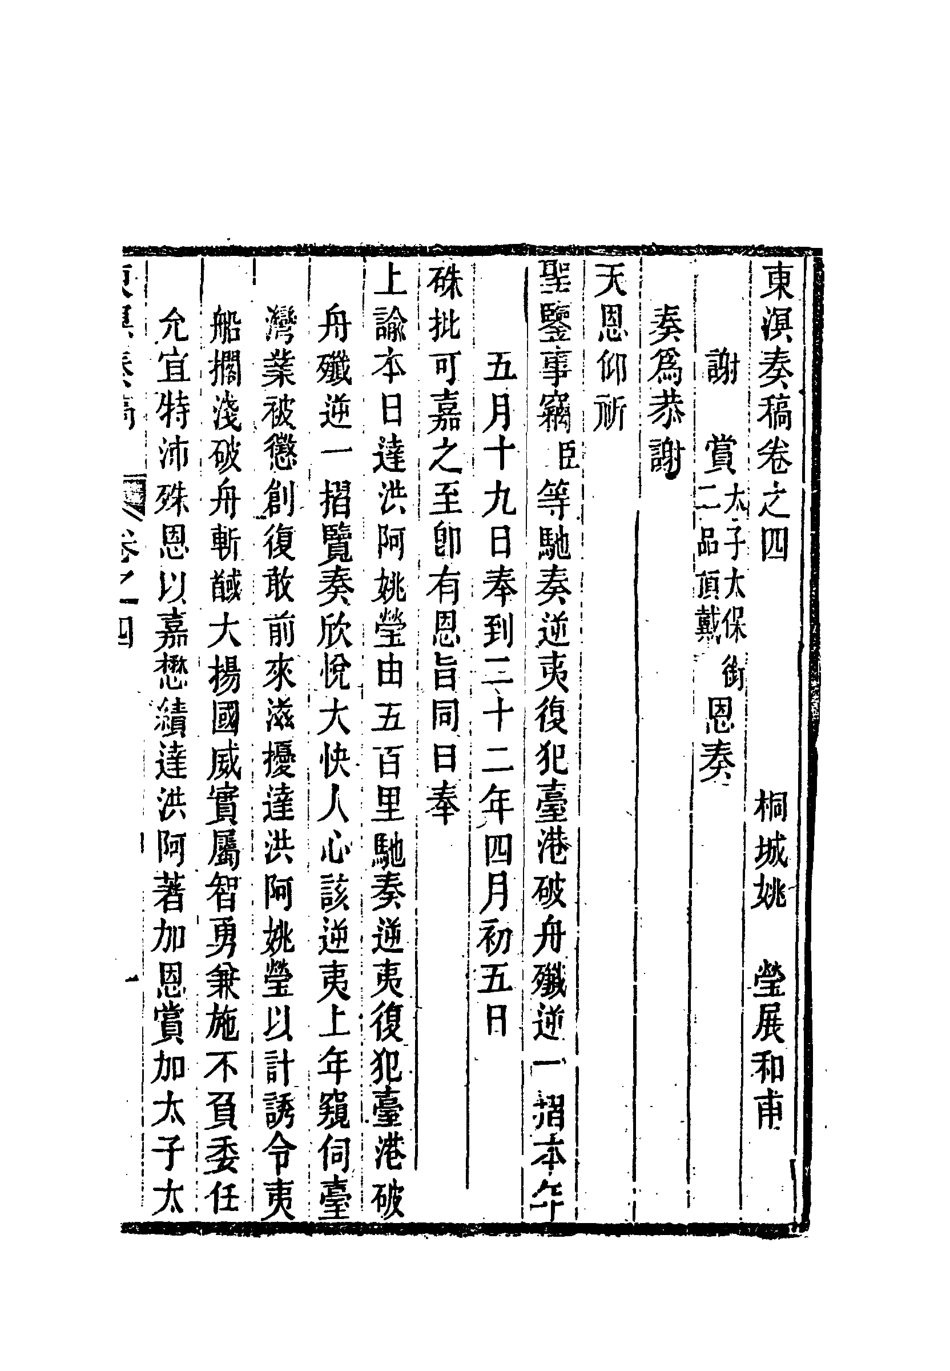 東溟奏稿卷之四
桐城姚　瑩展和甫
謝　賞太子太保銜二品頂戴恩奏
奏爲恭謝
天恩仰祈
聖鑒事竊臣等馳奏逆夷復犯臺港破舟殲逆一摺本年
五月十九日奉到二十二年四月初五日
硃批可嘉之至卽有恩旨同日奉
上諭本日達洪阿姚瑩由五百里馳奏逆夷復犯臺港破
舟殲逆一摺覽奏欣悅大快人心該逆夷上年窺伺臺
灣業被懲創復敢前來滋擾達洪阿姚瑩以計誘令夷
船擱淺破舟斬馘大揚國威實屬智勇兼施不負委任
允宜特沛殊恩以嘉懋績達洪阿著加恩賞加太子太
東溟奏稿　卷之四　一